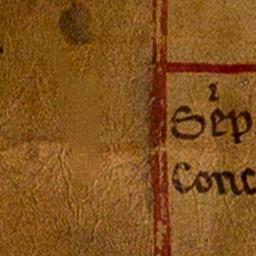 Sep
Conc